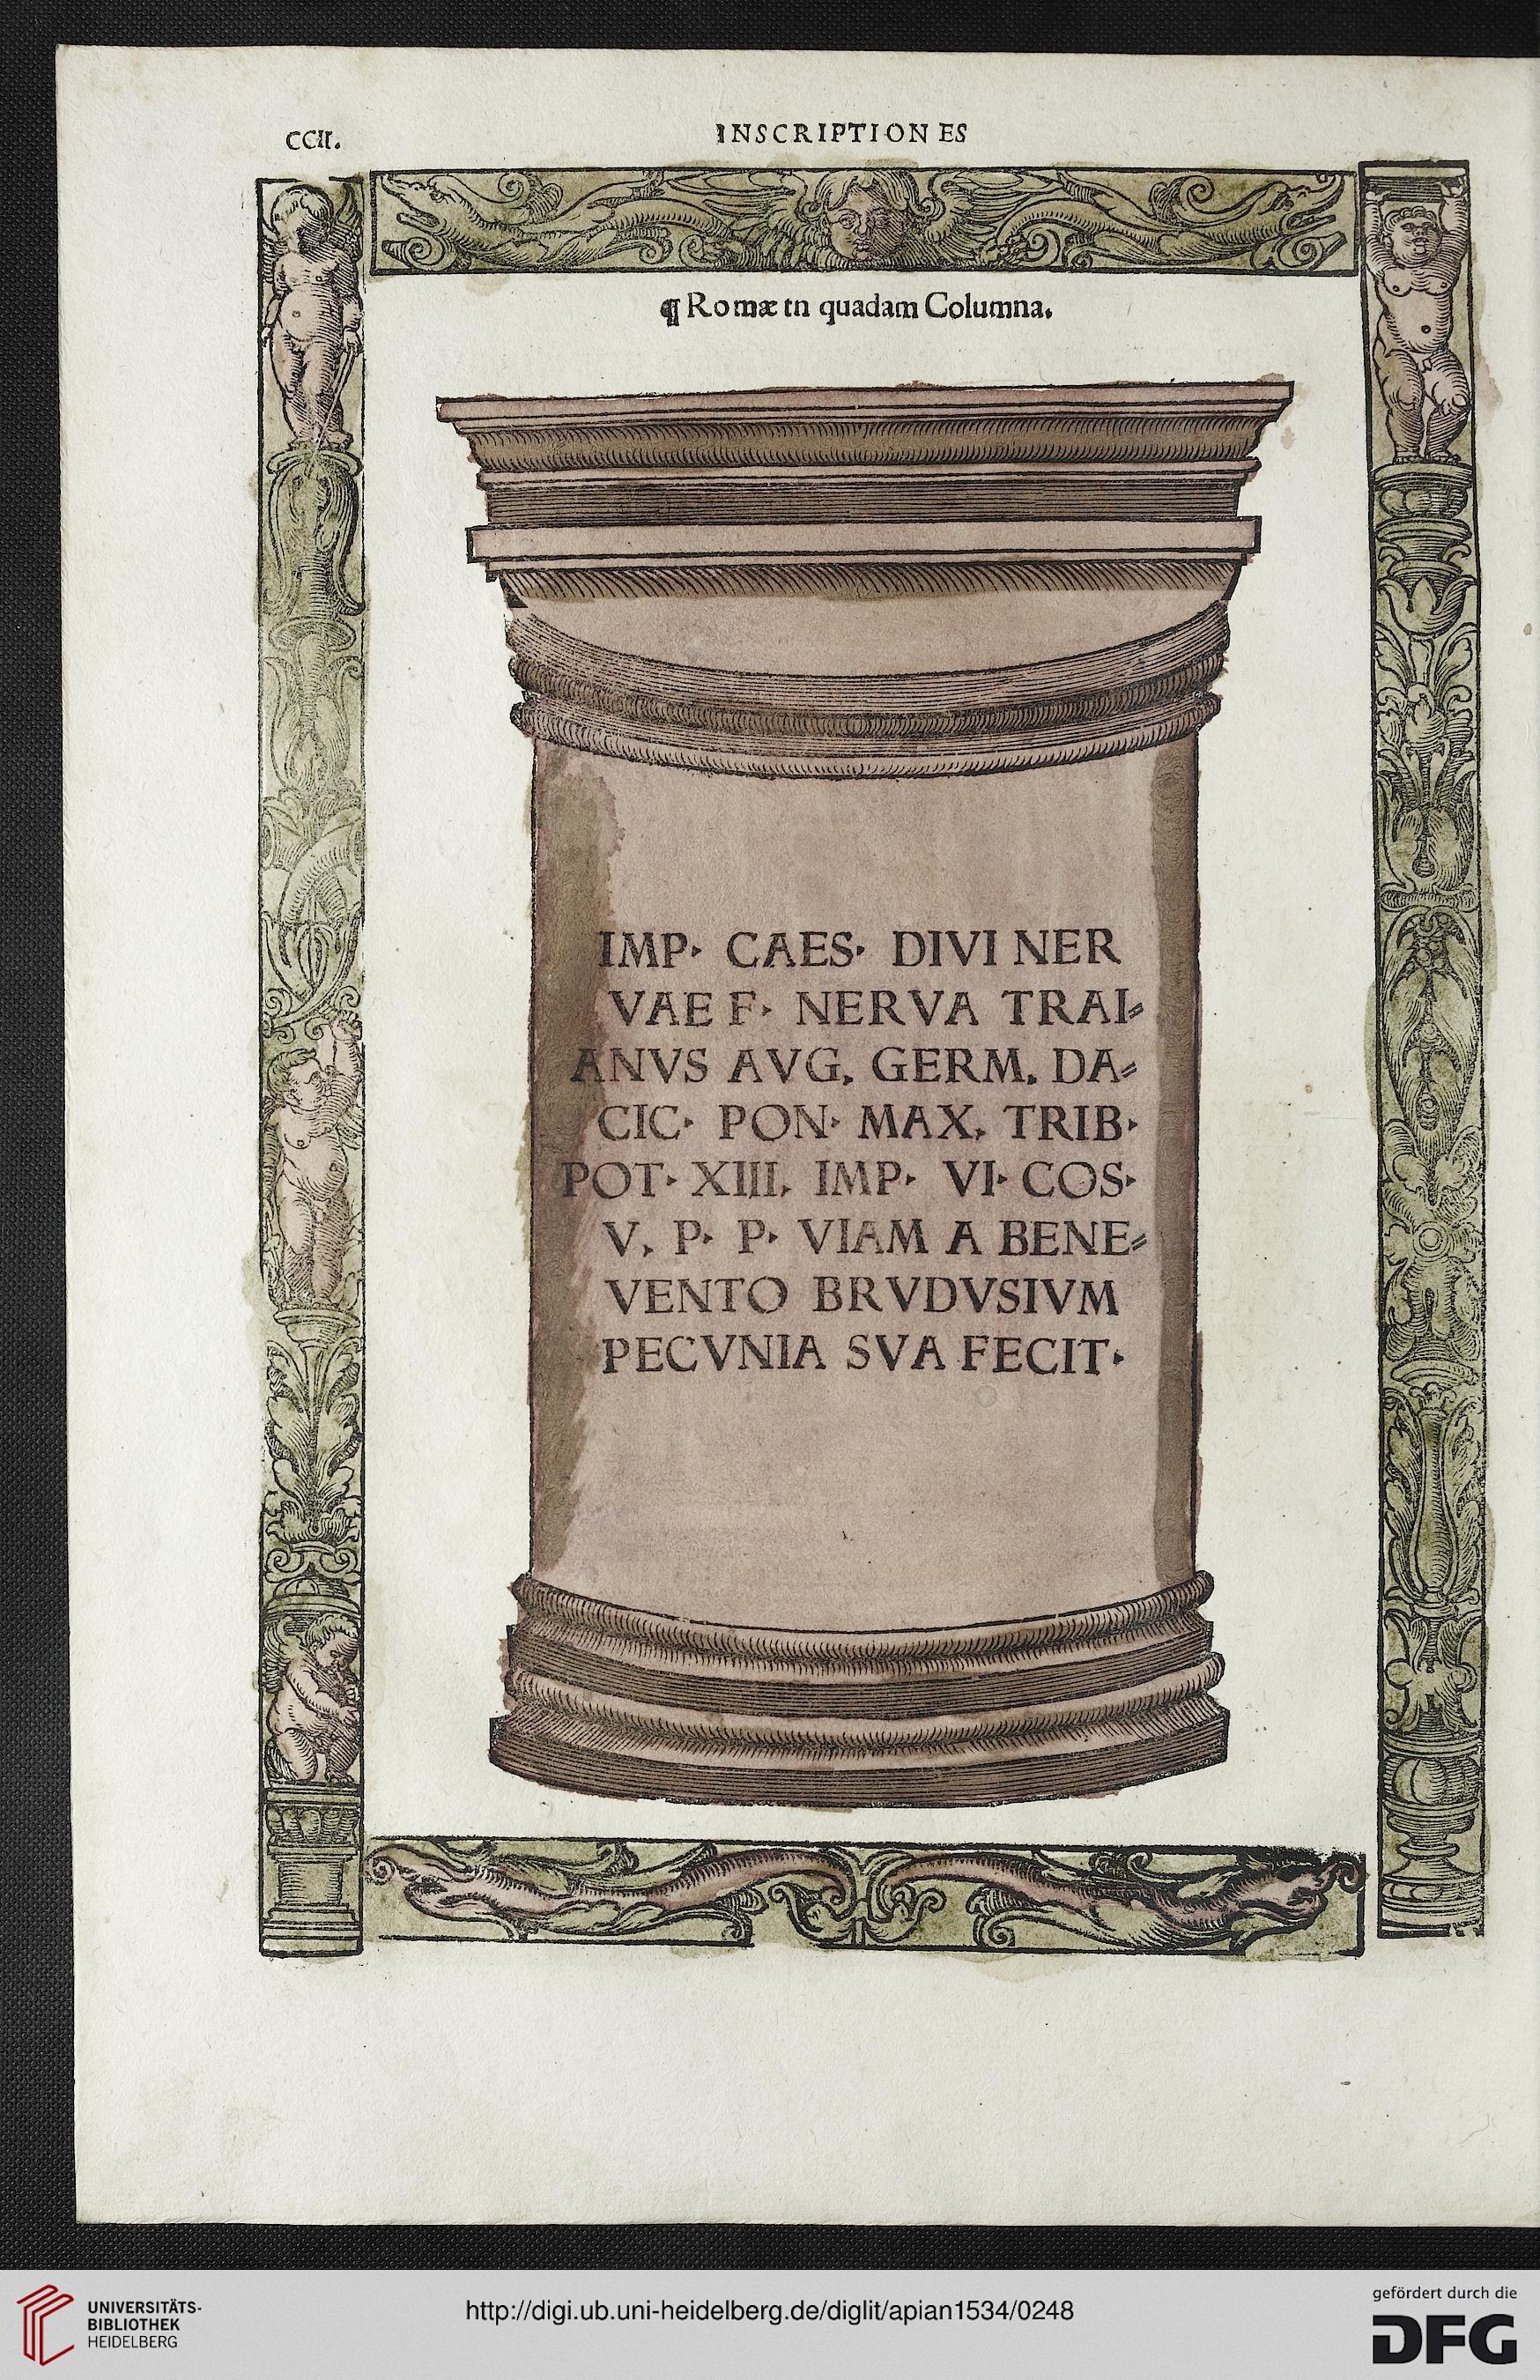 CCII.
INSCRIPTIONES
¶ Romæ in quadam Columna.
IMP· CAES· DIVI NER
VAE F· NERVA TRAI⸗
ANVS AVG. GERM. DA⸗
CIC· PON· MAX. TRIB·
POT· XIII. IMP· VI· COS·
V. P· P· VIAM A BENE⸗
VENTO BRVDVSIVM
PECVNIA SVA FECIT·
UNIVERSITÄTS-
BIBLIOTHEK
HEIDELBERG
http://digi.ub.uni-heidelberg.de/diglit/apian1534/0248
gefördert durch die
DFG